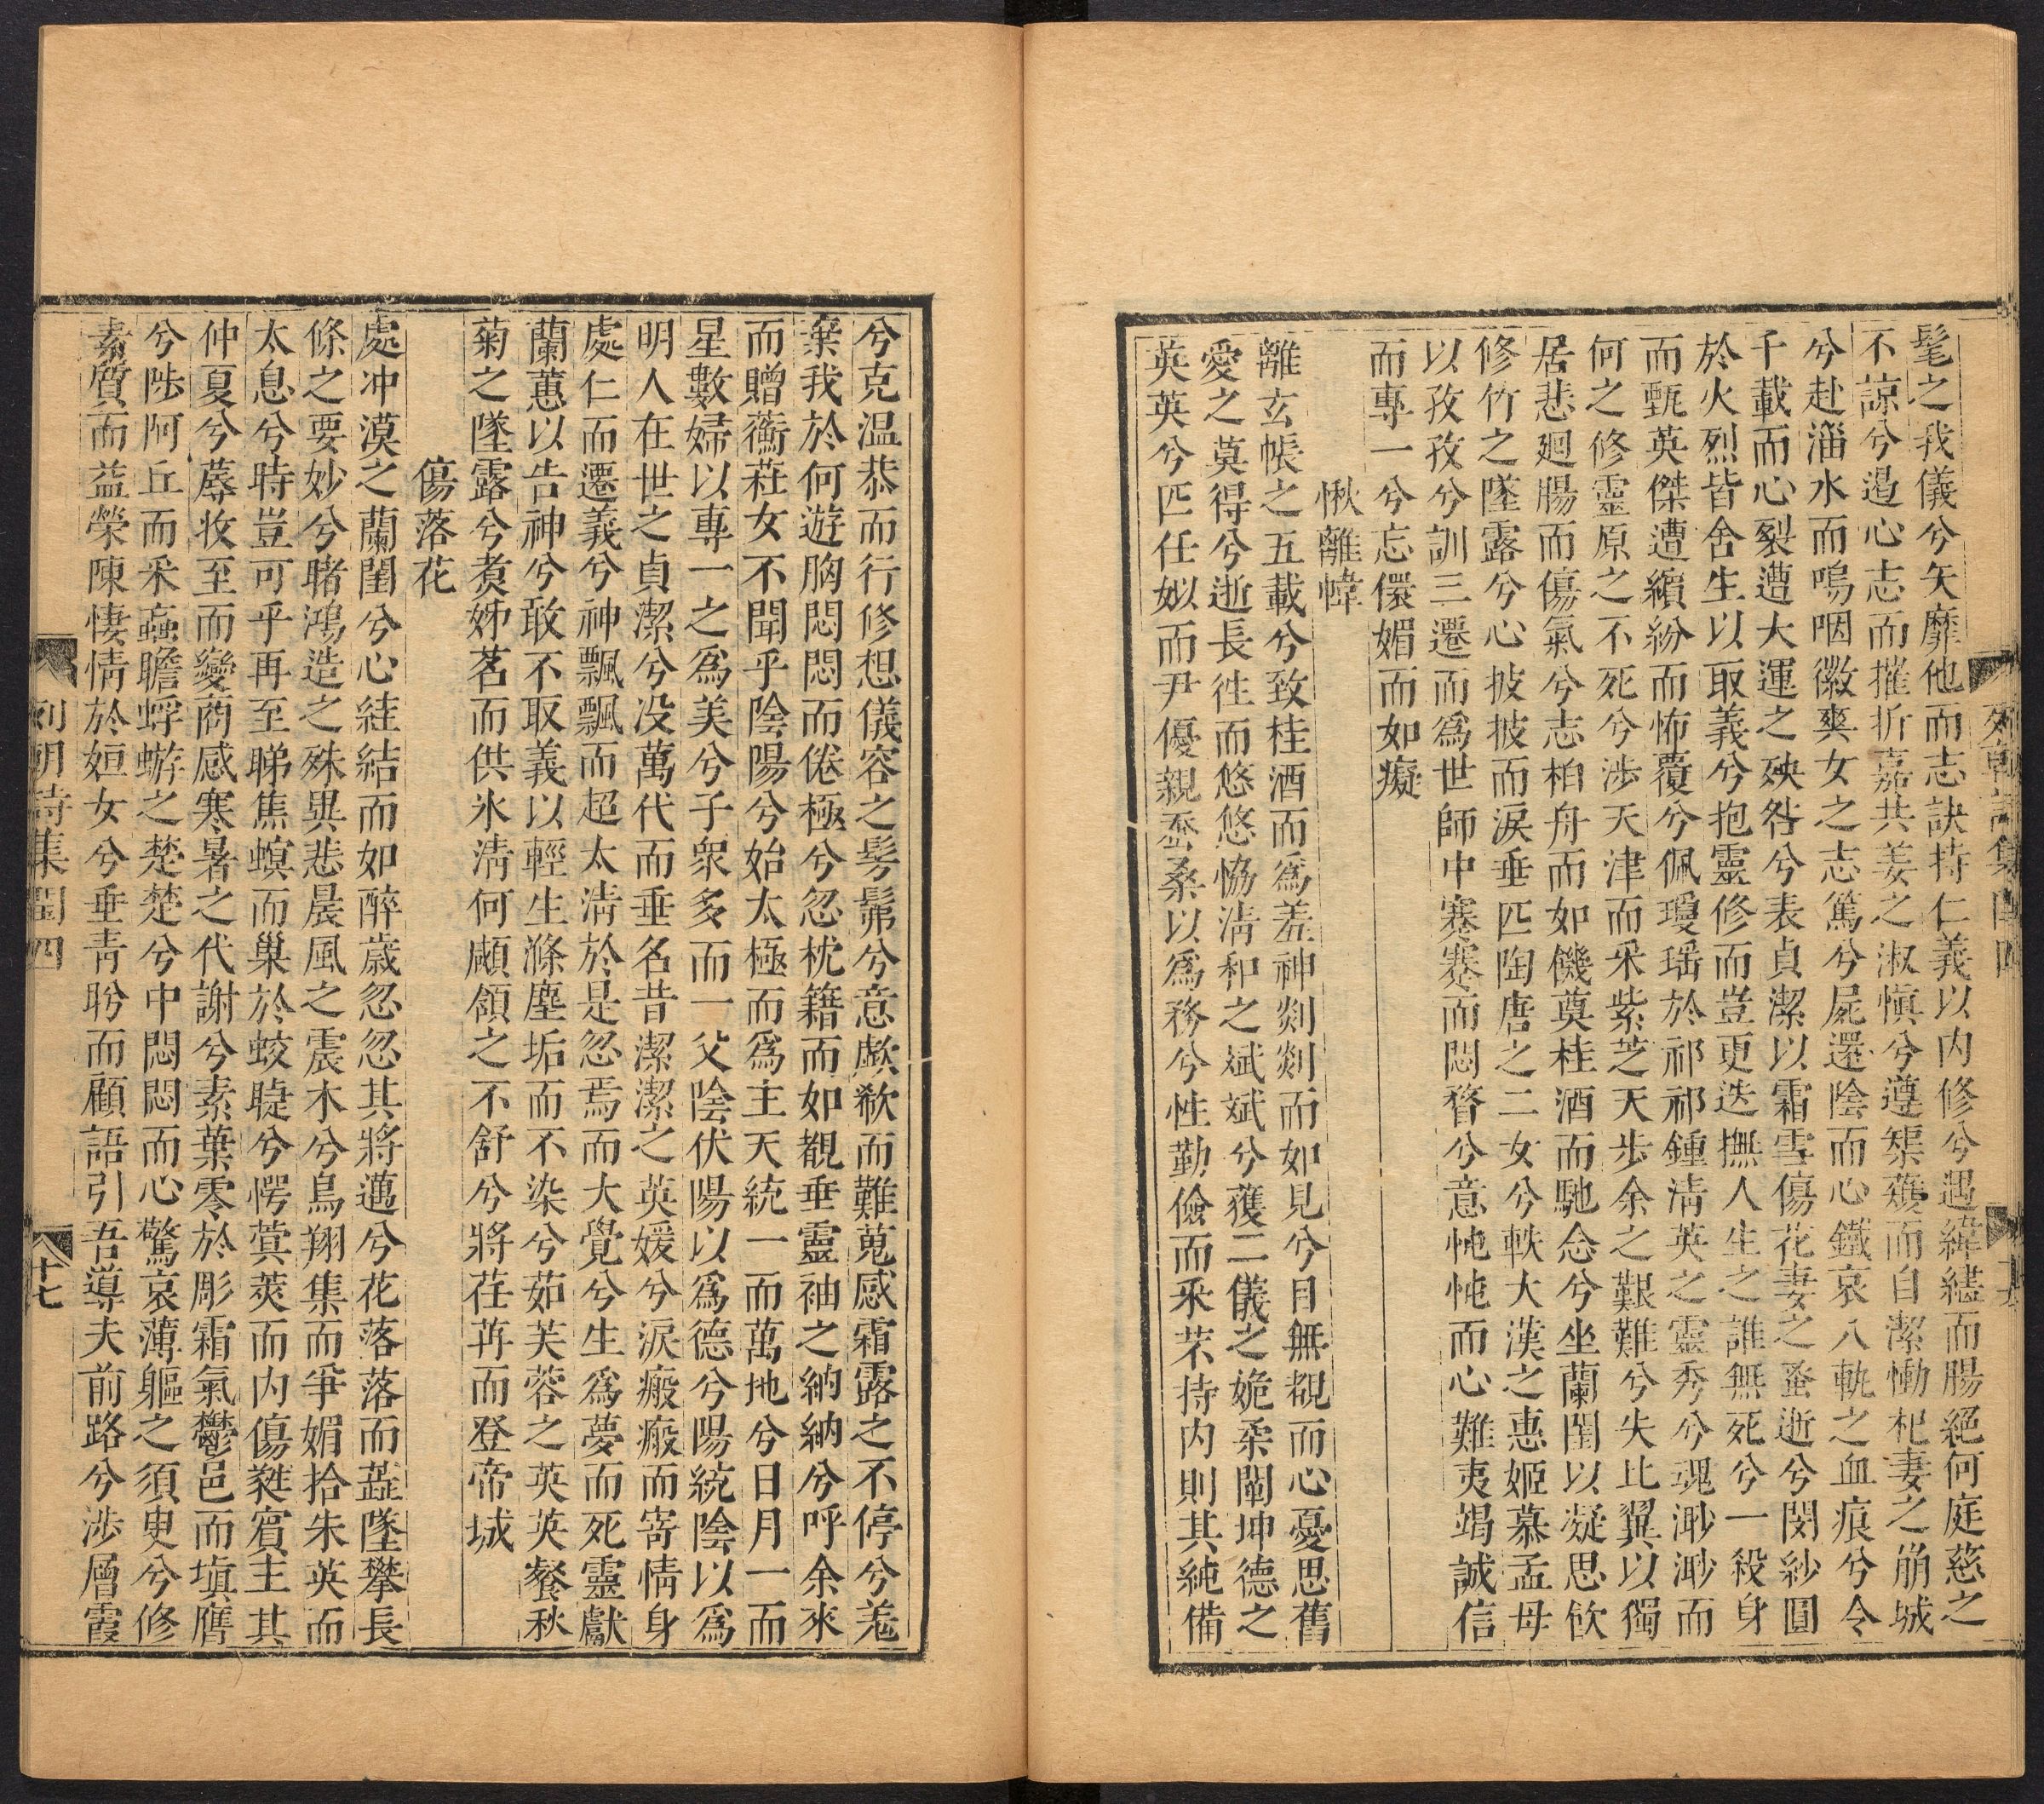 髦之我儀兮矢靡他而志訣持仁義以内修兮遇緯繣而腸絕何庭慈之
不諒兮遏心志而摧折嘉共姜之淑愼兮遵榘蒦而自潔慟杞妻之崩城
兮赴淄水而嗚咽徽爽女之志篤兮屍還陰而心鐵哀八軌之血痕兮令
千載而心裂遭大運之殃咎兮表貞潔以霜雪傷花妻之蚤逝兮閔紗圓
於火烈皆舍生以取義兮抱靈修而豈更迭撫人生之誰無死兮一殺身
而甄英傑遭繽紛而怖覆兮佩瓊瑶於祁祁鍾淸英之靈秀兮魂渺渺而
何之修靈原之不死兮涉天津而采紫芝天步余之艱難兮失比翼以獨
居悲廻腸而傷氣兮志柏舟而如僟奠桂酒而馳念兮坐蘭閨以凝思飲
修竹之墜露兮心披披而淚垂匹陶唐之二女兮軼大漢之惠姬慕孟母
以孜孜兮訓三遷而爲世師中蹇蹇而悶瞀兮意忳忳而心難夷竭誠信
而專一兮忘儇媚而如癡
愀離幃
離玄帳之五載兮致桂酒而爲羞神剡剡而如見兮目無覩而心憂思舊
愛之莫得兮逝長徃而悠悠恊淸和之斌斌兮獲二儀之姽柔闡坤德之
英英兮匹任姒而尹優親蚕桑以爲務兮性勤儉而采芣持内則其純備
列朝詩集閏四
兮克温恭而行修想儀容之髣髴兮意歔欷而難蒐感霜露之不停兮羗
棄我於何遊胸悶悶而倦極兮忽枕籍而如覩垂靈袖之納納兮呼余來
而贈蘅莊女不聞乎陰陽兮始太極而爲主天統一而萬地兮日月一而
星數婦以專一之爲美兮子衆多而一父陰伏陽以爲德兮陽統陰以爲
明人在世之貞潔兮没萬代而垂名昔潔潔之英媛兮淚瘢瘢而寄情身
處仁而遷義兮神飄飄而超太淸於是忽焉而大覺兮生爲夢而死靈獻
蘭蕙以告神兮敢不取義以輕生滌塵垢而不染兮茹芙蓉之英英餐秋
菊之墜露兮煑姊茗而供氷淸何顑頷之不舒兮將荏苒而登帝城
傷落花
處冲漠之蘭閨兮心絓結而如醉歲忽忽其將邁兮花落落而蘂墜攀長
條之要妙兮睹鴻造之殊異悲晨風之震木兮鳥翔集而爭媚拾朱英而
太息兮時豈可乎再至睇焦螟而巢於蛟睫兮愕蓂莢而内傷蕤賓主其
仲夏兮蓐收至而變商感寒暑之代謝兮素葉零於彫霜氣鬱邑而塡膺
兮陟阿丘而采蝱瞻蜉蝣之楚楚兮中悶悶而心驚哀薄軀之須臾兮修
素質而益榮陳悽情於姮女兮垂靑盻而顧語引吾導夫前路兮涉層霞
列朝詩集閏四
十七